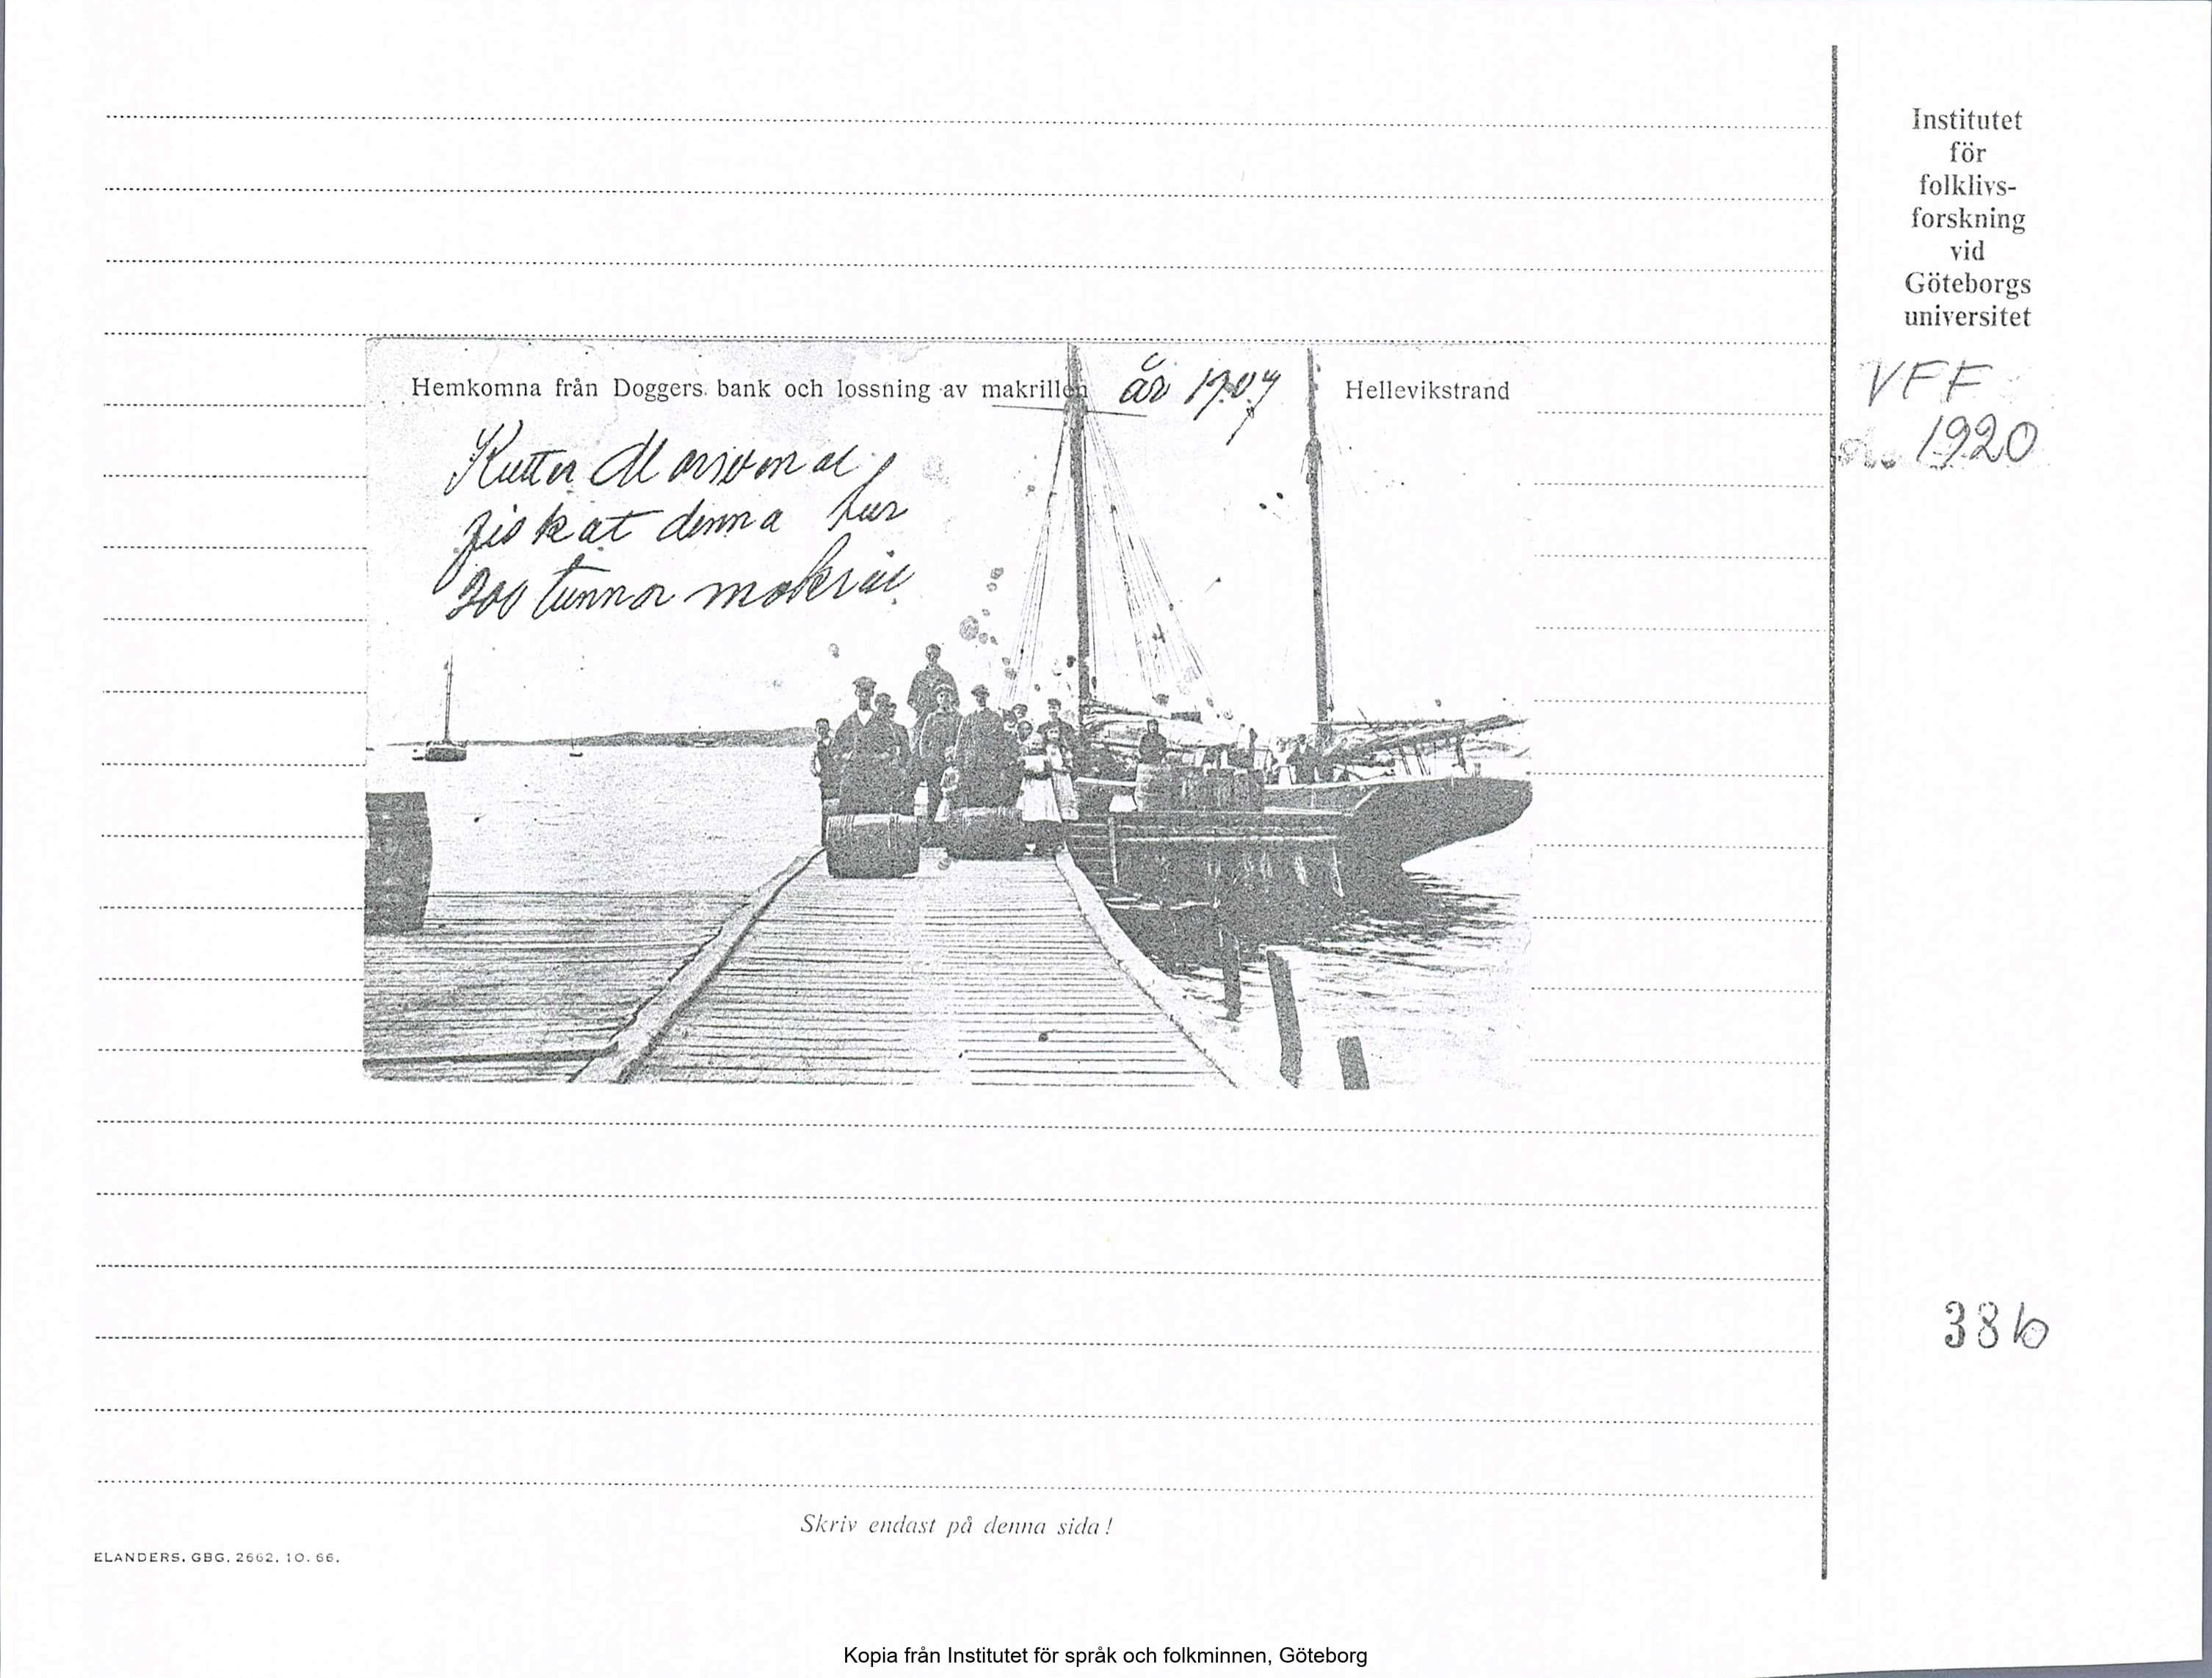 Institutet
för
folklivs-
forskning
vid
Göteborgs
universitet
VFF
1920
Hemkomna från Doggers bank och lossning av makrillen år 1907 Hellevikstrand
Kutter
fiskat denna tur
300 tunnor makrill
38b
Skriv endast på denna sida!
ELANDERS. GBG. 2662. 10. 66.
Kopia från Institutet för språk och folkminnen, Göteborg